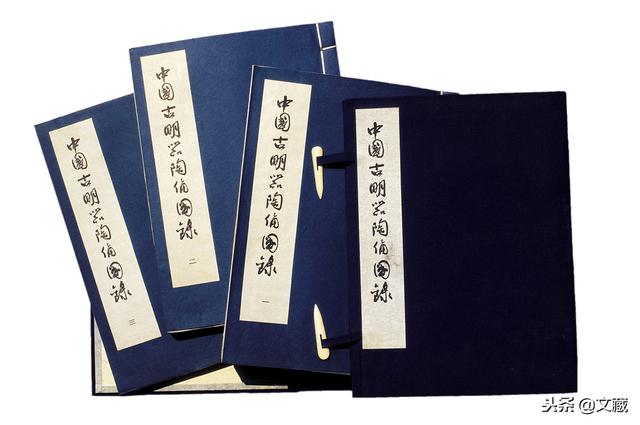 中國古明器陶俑圖錄
三
中國古明器陶俑圖錄
二
中國古明器陶俑圖錄
一
中國古明器陶俑圖錄
头条@文藏